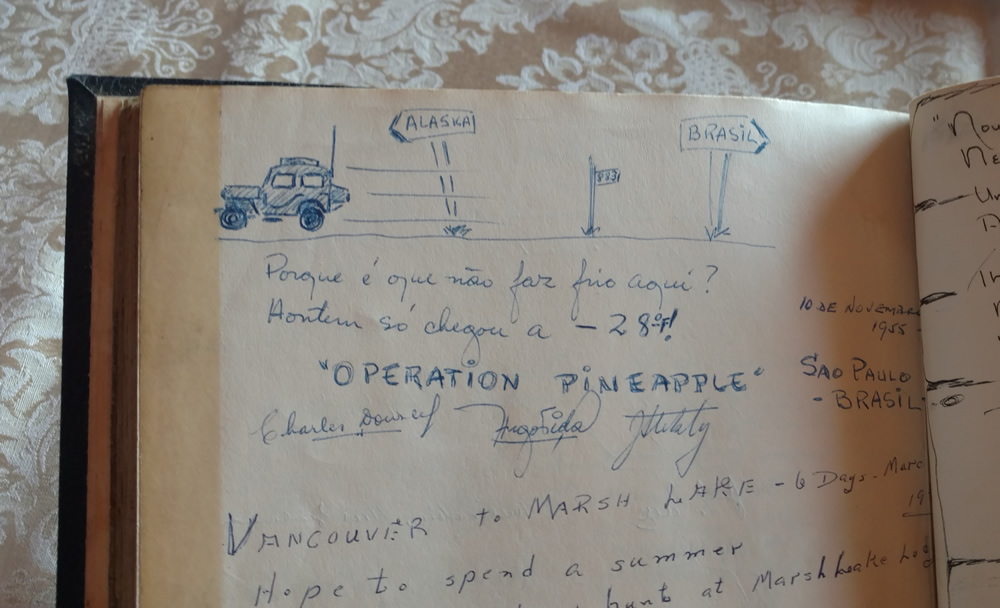 ALASKA
BRASIL
Porque é que não faz frio aqui?
Hontem só chegou a -28°F!
10 DE NOVEMBRO
1955
"OPERATION PINEAPPLE"
SAO PAULO
- BRASIL
Charles Downey
VANCOUVER to MARSH LAKE - 6 Days. Marc
19
Hope to spend a summer
hunt at Marsh Lake Lod
"Now
Ne